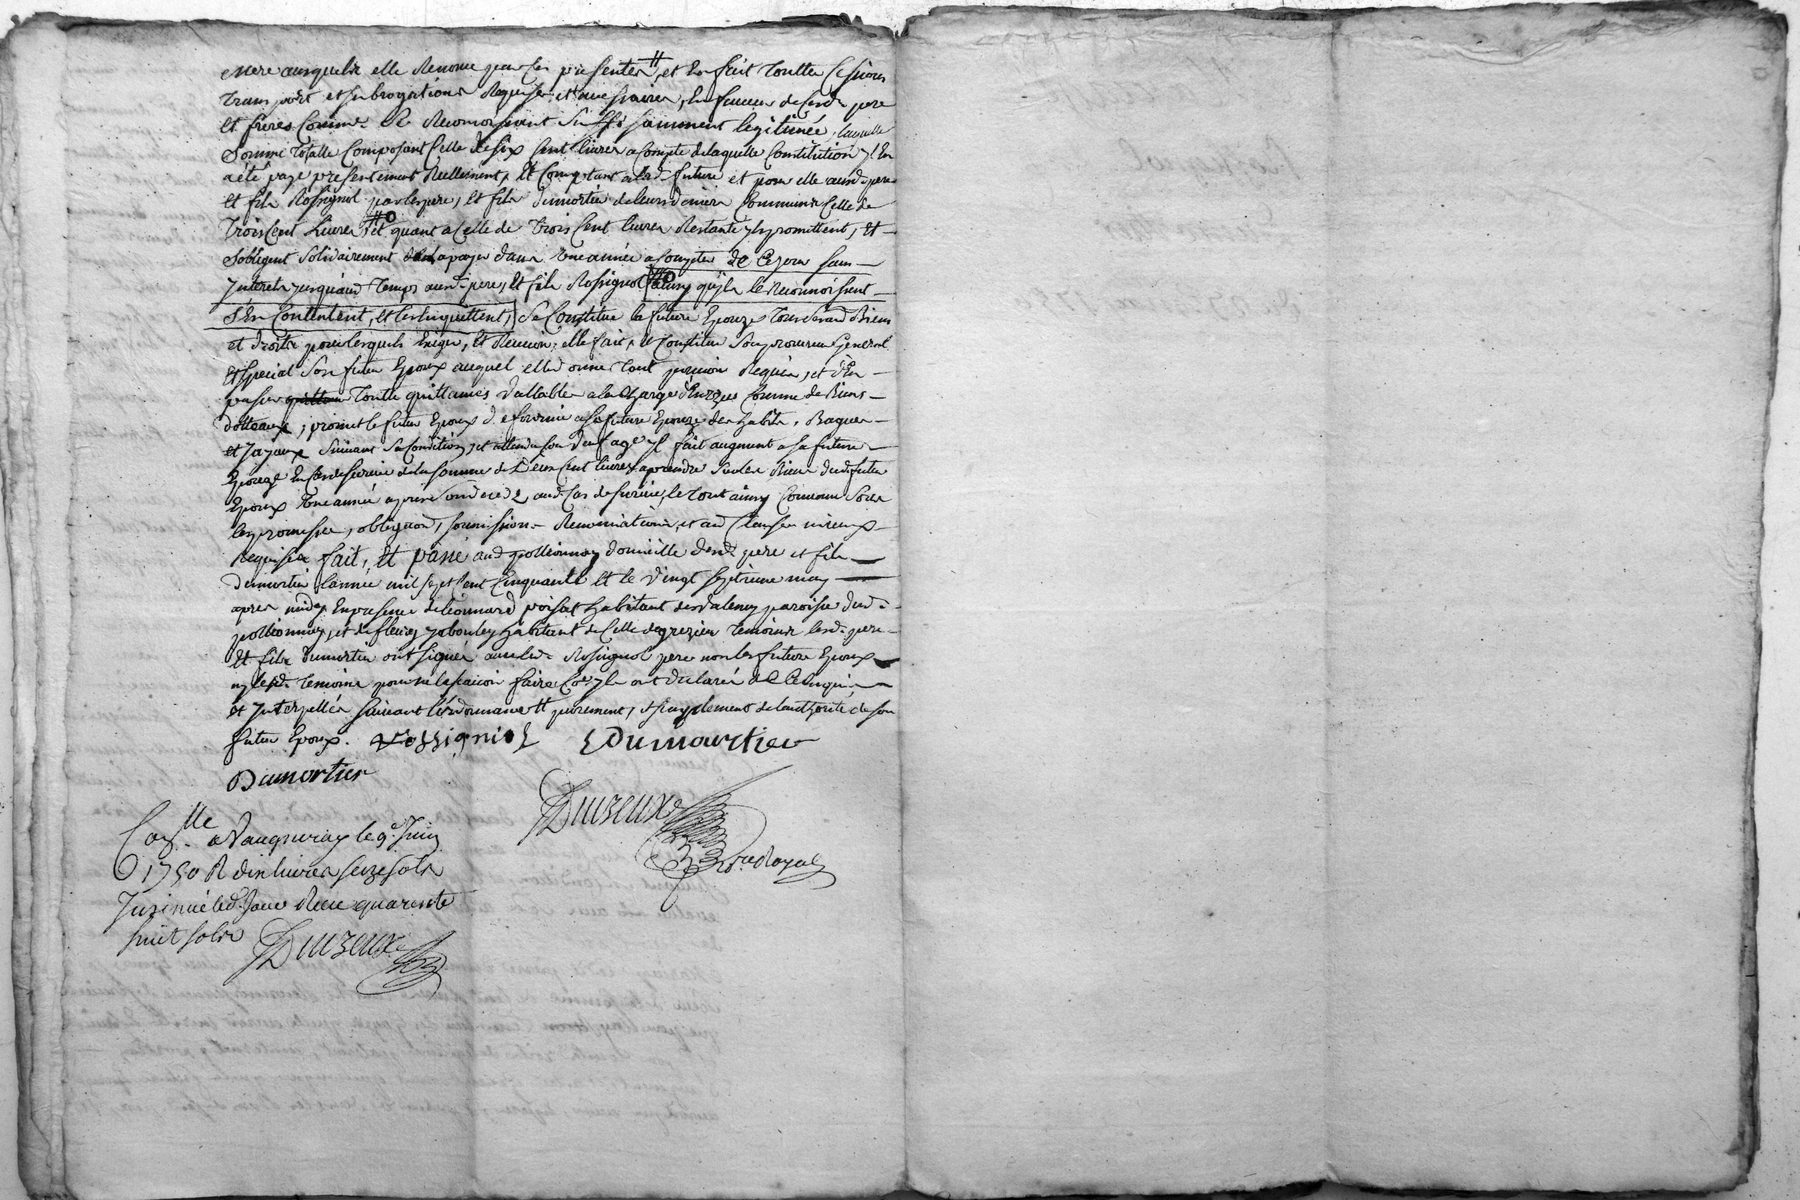 mere ausquels elle Renonce par ces presentes # et En fait Toutte Cessions
Transport et subrogations Requise, et necessaires, En faveur desesd. pere
Et freres Comme Se Reconnoissant Suffisamment legitimée, laquelle
Somme Totalle Composant Celle de six Cent livres acompte delaquelle Constitution yl En
a été payé presentement Reellement, Et Comptant alad. future et pour elle ausd. pere
et fils Rossignol par lespere, et fils Dumortier deleurs deniers Communs Celle de
Trois Cent Livres #O et quant a Celle de Trois Cent livres Restante ils promettent, Et
Sobligent Solidairement de la payer dans Une année a Compter de Ce jour sans
Interets jusquaud. Temps ausd. pere, Et fils Rossignol #O ainsy qu'yls le Reconnoissent
S'En Contentent, et les en quittent, Se Constitue la future Epouze Tous ses aud. Biens
et droits pour lesquels Exiger, et Recevoir, elle fait, et Constitue Son procureur General
Et Special Son futur Epoux auquel elle donne Tout pouvoir Requis, et d'En
passer Toutte quittances Vallables a la Charge d'Icelles Comme de Biens
dottaux, promet le futur Epoux d. e fournir a sa future Epouze des habits, Bagues
et Joyaux Suivant sa Condition, et attendu son Veufage yl fait augment a sa future
Epouze En Cas de survie de la somme de Deux Cent livres aprendre Sur les Biens dud. futur
Epoux Une année apres Son deced. aud. Cas de survie, le Tout ainsy Convenu Sous
les promesses, obligaons, soumissions Renonciations, et aud. Clauses mieux
Requises fait, Et passé aud. pollionnay domicille desd. pere et fils
Dumortier l'année mil sept Cent Cinquante Et le Vingt Septieme may
apres midy En presence de Leonnard poisat habitant de Valency paroisse dud.
pollionnay, et de fleury jaboulley habitant de Celle de grezieu Temoins lesd. pere
Et fils Dumortier ont signés avec led. Rossignol pere non les futurs Epoux
ny lesd. Temoins pour ne le sçavoir faire Co. yls ont declarés de Ce Enquis
et Interpellés Suivant l'ordonnance # purement, et simplement de lauthorité de son
futur Epoux. Rossigniol Dumourtier
Dumortier
Duizeux
Nore Royal
Conlle a Vaugneray le 9e Juin
1750 R dix livres seize sols
Insinué led. Jour Receu quarente
huit sols Duizeux